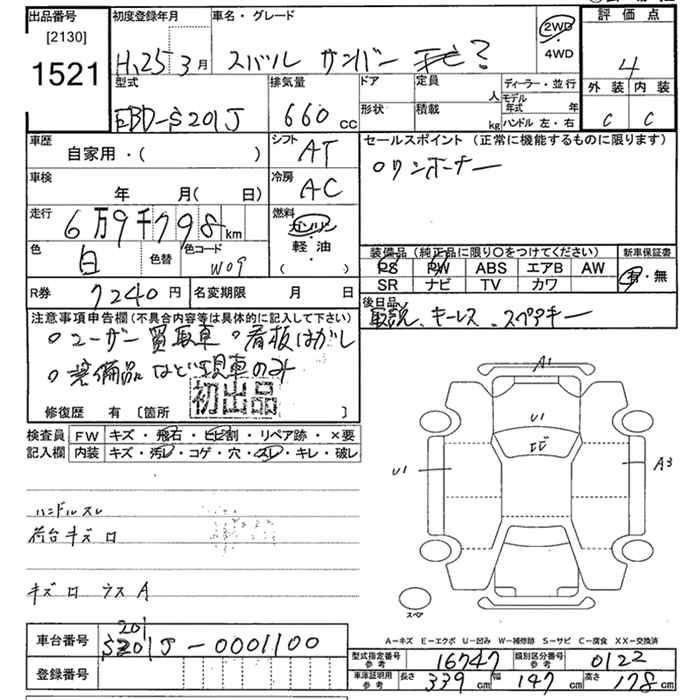 出品番号
[2130]
1521
初度登録年月
H.25 3月
車名・グレード
スバル サンバー
2WD
・
4WD
評価点
4
外装 内装
C C
型式
EBD-S201J
排気量
660 CC
ドア
形状
定員 人
積載 kg
ディーラー・並行
モデル年式 年
ハンドル 左・右
車歴
自家用・( )
シフト
AT
セールスポイント (正常に機能するものに限ります)
○ワンオーナー
車検
年 月( 日)
冷房
AC
走行
6万9千798 km
燃料
ガソリン
軽油・
( )
色
白
色替
色コード
W09
装備品 (純正品に限り○をつけてください)
PS PW ABS エアB AW
SR ナビ TV カワ
新車保証書
有・無
R券 7240円
名変期限 月 日
後日品
取説、キーレス、スペアキー
注意事項申告欄(不具合内容等は具体的に記入して下さい)
○ユーザー買取車 ○看板はがし
○装備品など現車のみ
初出品
修復歴 有 [箇所 ]
検査員 FW キズ・飛石・ヒビ割・リペア跡・×要
記入欄 内装 キズ・汚レ・コゲ・穴・スレ・キレ・破レ
ハンドルスレ
荷台キズロ
キズロ ウスA
A1
U1
エビ
U1
A3
スペア
A-キズ E-エクボ U-凹み W-補修跡 S-サビ C-腐食 XX-交換済
車台番号
201
S201J-0001100
登録番号
型式指定番号参考 16747 類別区分番号参考 0122
車庫証明用参考 長さ 339cm 幅 147cm 高さ 178cm